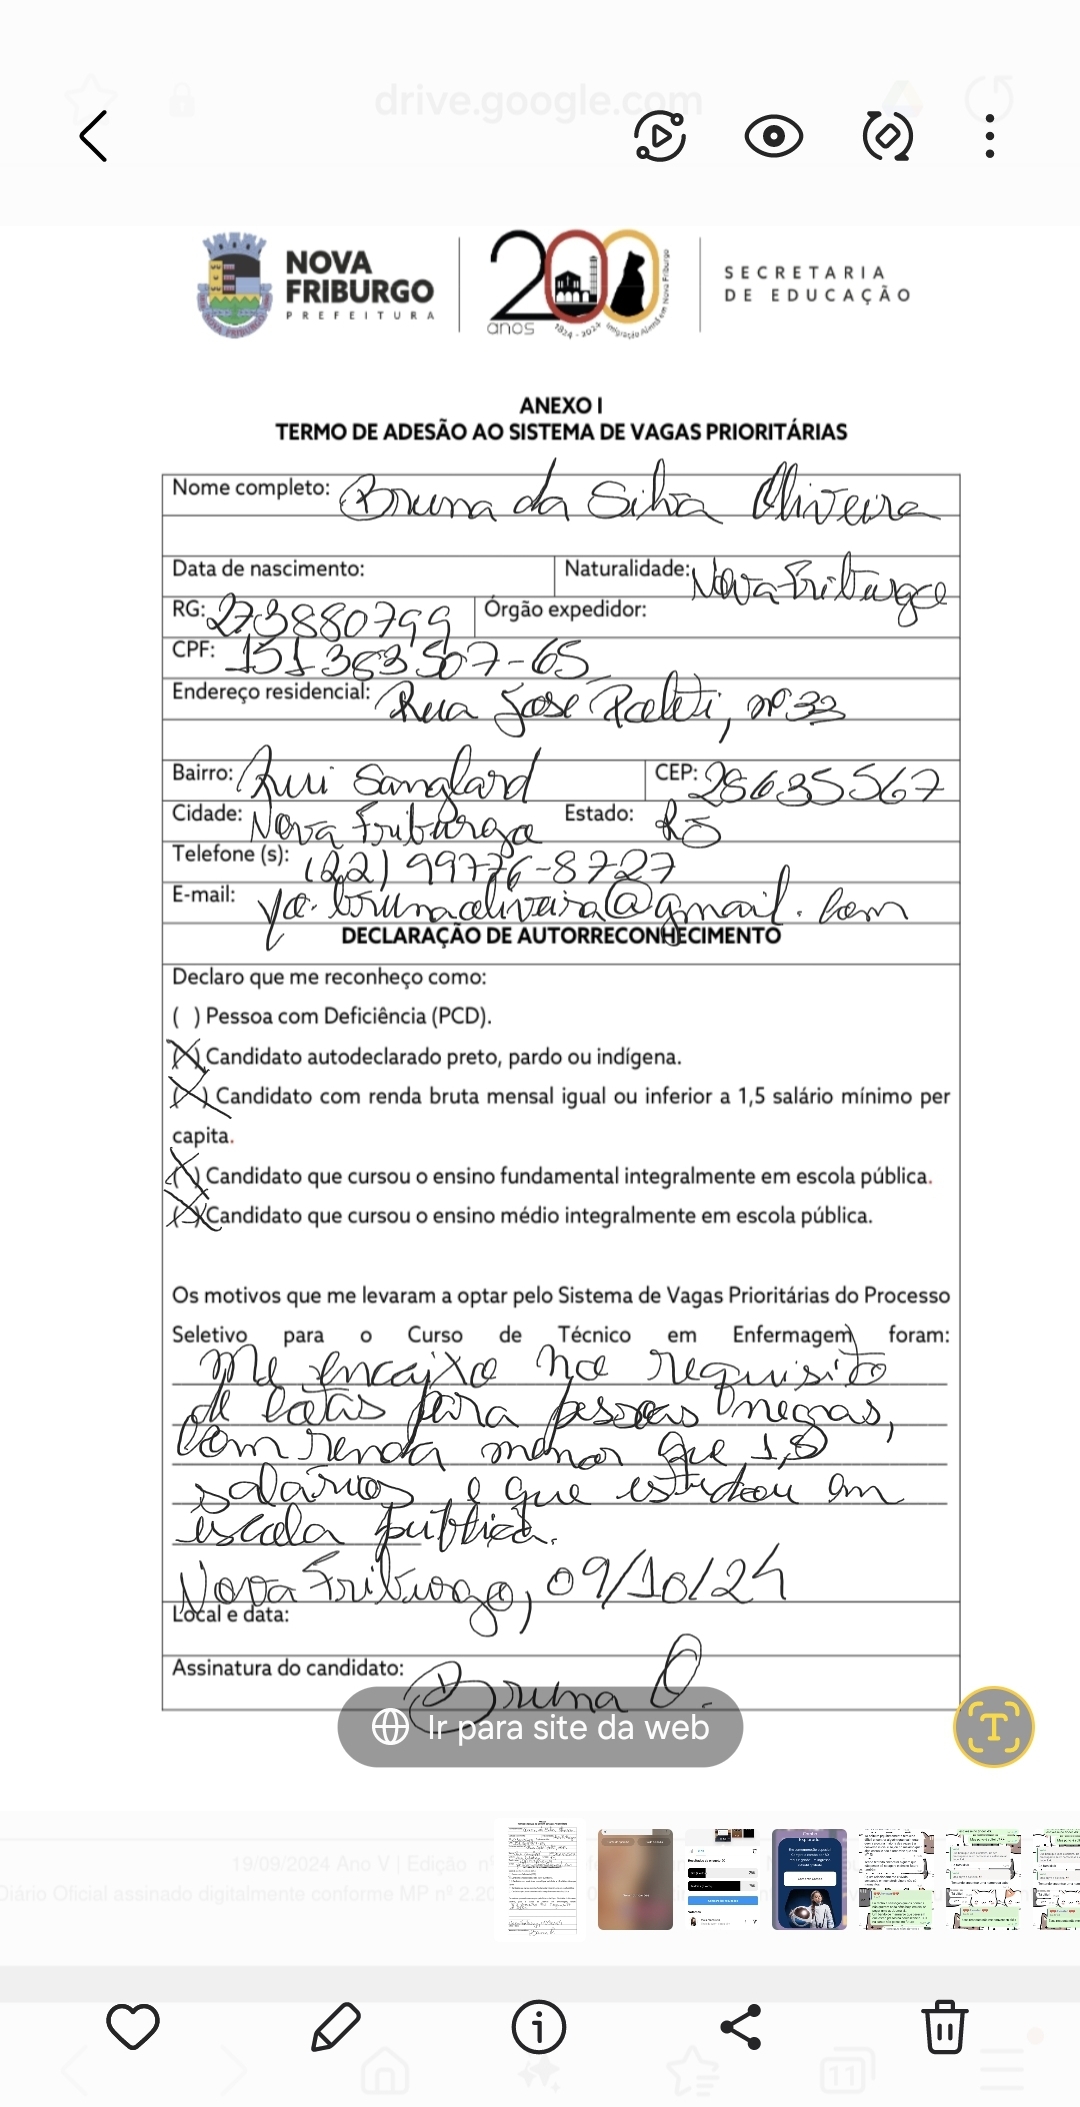 drive.google.com
NOVA FRIBURGO
PREFEITURA
200
anos
1824 - 2024 Imigração Alemã em Nova Friburgo
SECRETARIA
DE EDUCAÇÃO
ANEXO I
TERMO DE ADESÃO AO SISTEMA DE VAGAS PRIORITÁRIAS
Nome completo: Bruna da Silva Oliveira
Data de nascimento: Naturalidade: Nova Friburgo
RG: 273880799 Órgão expedidor:
CPF: 151 363 507-65
Endereço residencial: Rua José, nº 33
Bairro: Rui Sanglard CEP: 28635567
Cidade: Nova Friburgo Estado: RJ
Telefone (s): (22) 99776-8727
E-mail: yo.brunaoliveira@gmail.com
DECLARAÇÃO DE AUTORRECONHECIMENTO
Declaro que me reconheço como:
( ) Pessoa com Deficiência (PCD).
(X) Candidato autodeclarado preto, pardo ou indígena.
(X) Candidato com renda bruta mensal igual ou inferior a 1,5 salário mínimo per
capita.
(X) Candidato que cursou o ensino fundamental integralmente em escola pública.
(X) Candidato que cursou o ensino médio integralmente em escola pública.
Os motivos que me levaram a optar pelo Sistema de Vagas Prioritárias do Processo
Seletivo para o Curso de Técnico em Enfermagem foram:
Me encaixo no requisito
de cotas para pessoas negras,
com renda menor que 1,5
salários e que estudou em
escola pública.
Nova Friburgo, 09/10/24
Local e data:
Assinatura do candidato: Bruna O.
Ir para site da web
T
19/09/2024 Ano V | Edição nº
Diário Oficial assinado digitalmente conforme MP nº 2.20
11